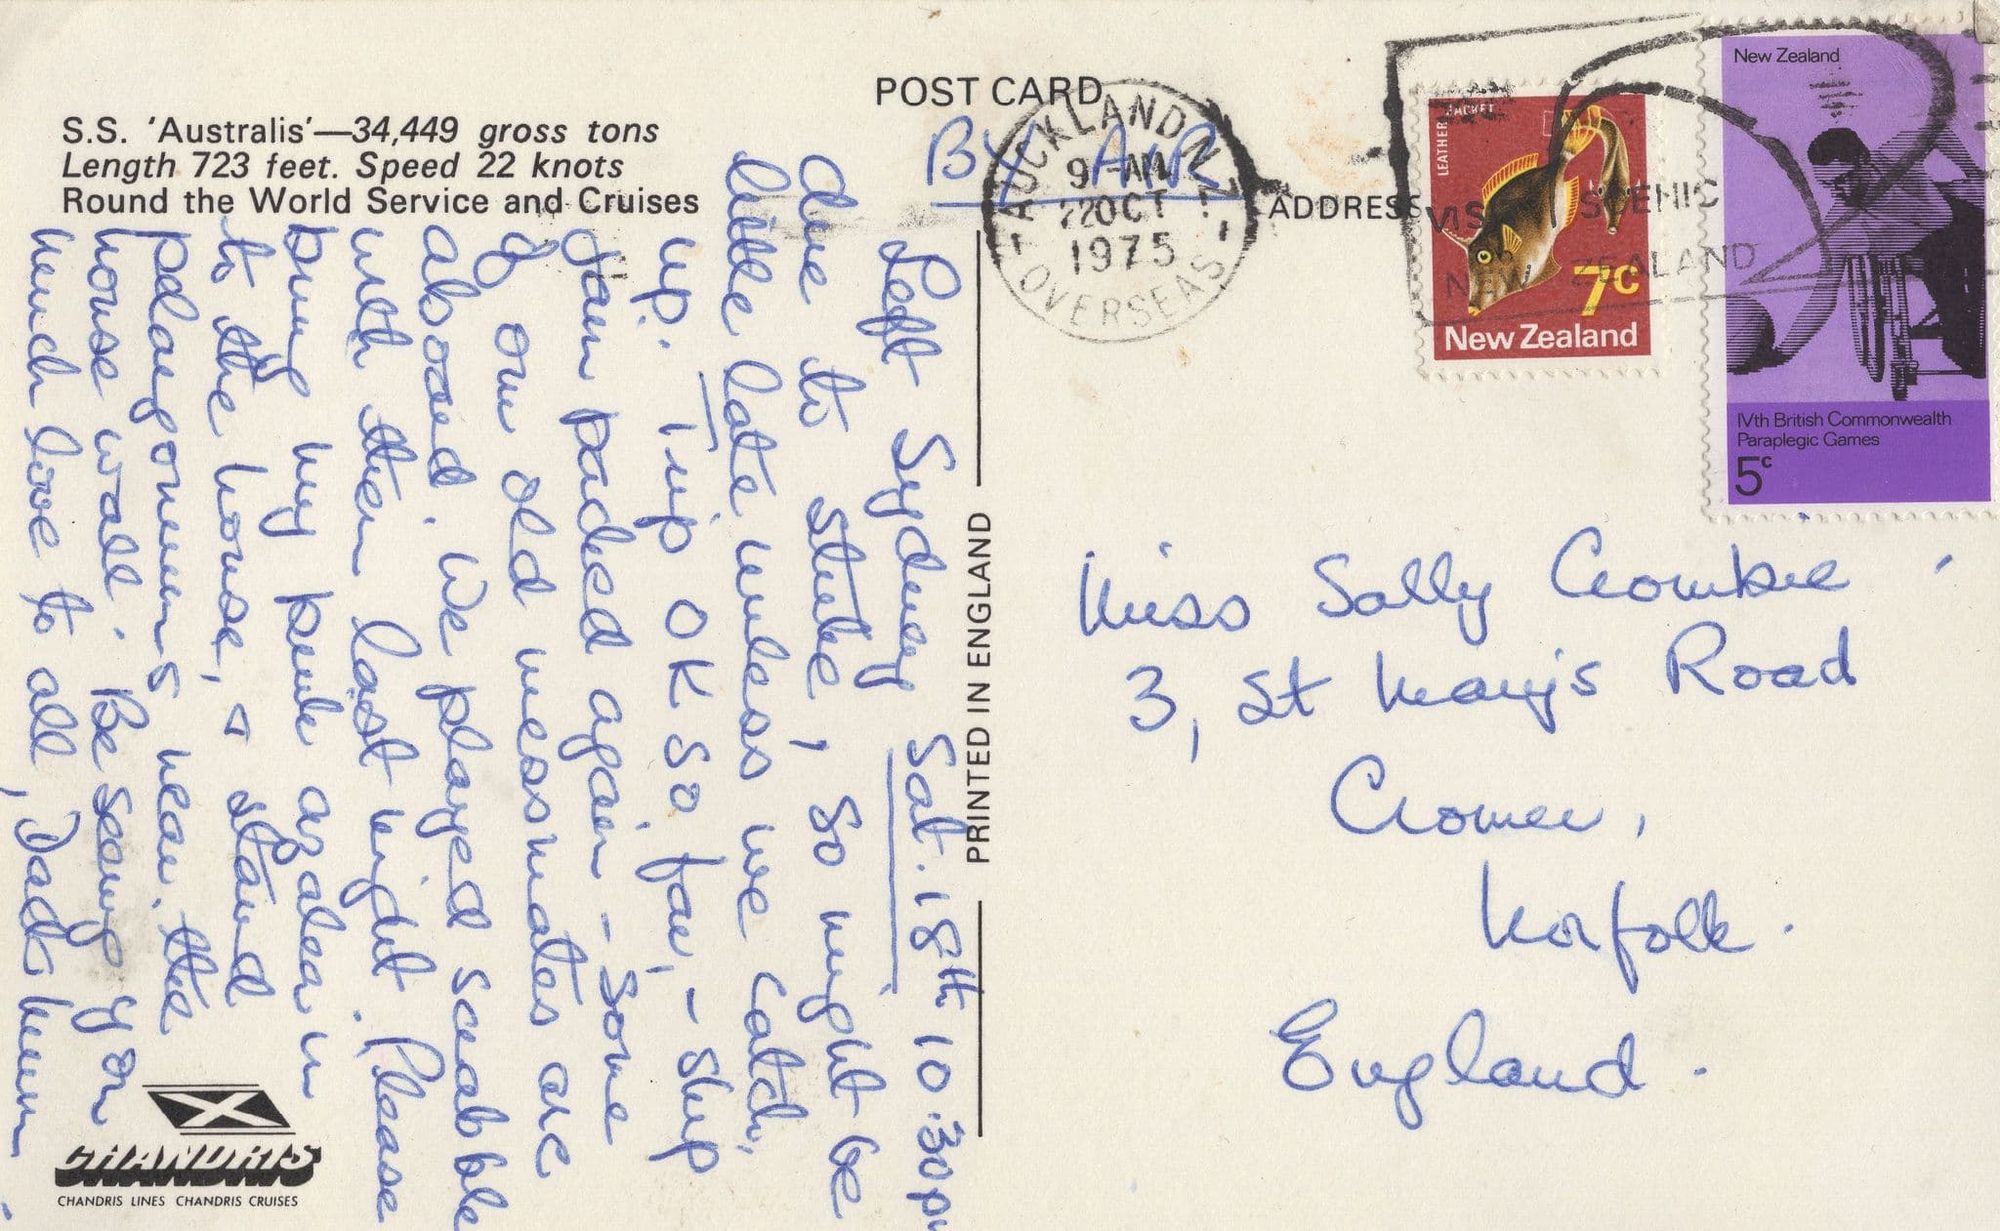 S.S. 'Australis'—34,449 gross tons
Length 723 feet. Speed 22 knots
Round the World Service and Cruises
POST CARD
BY AIR
ADDRESS
AUCKLAND N.Z.
9-AM
22OCT
1975
OVERSEAS
VISIT SCENIC
NEW ZEALAND
LEATHER JACKET
7c
New Zealand
New Zealand
IVth British Commonwealth
Paraplegic Games
5c
Left Sydney Sat. 18th 10.30p
due to strike, so might be
little late unless we catch
up. Trip OK so far, - ship
jam packed again - some
of our old messmates are
aboard. We played scrabble
with them last night. Please
bring my pink azalea in
to the house, & stand
pelargoniums near the
house wall. Be seeing you
much love to all, Dad & Mum
PRINTED IN ENGLAND
Miss Sally Crombie
3, St Mary's Road
Cromer,
Norfolk.
England.
CHANDRIS
CHANDRIS LINES CHANDRIS CRUISES